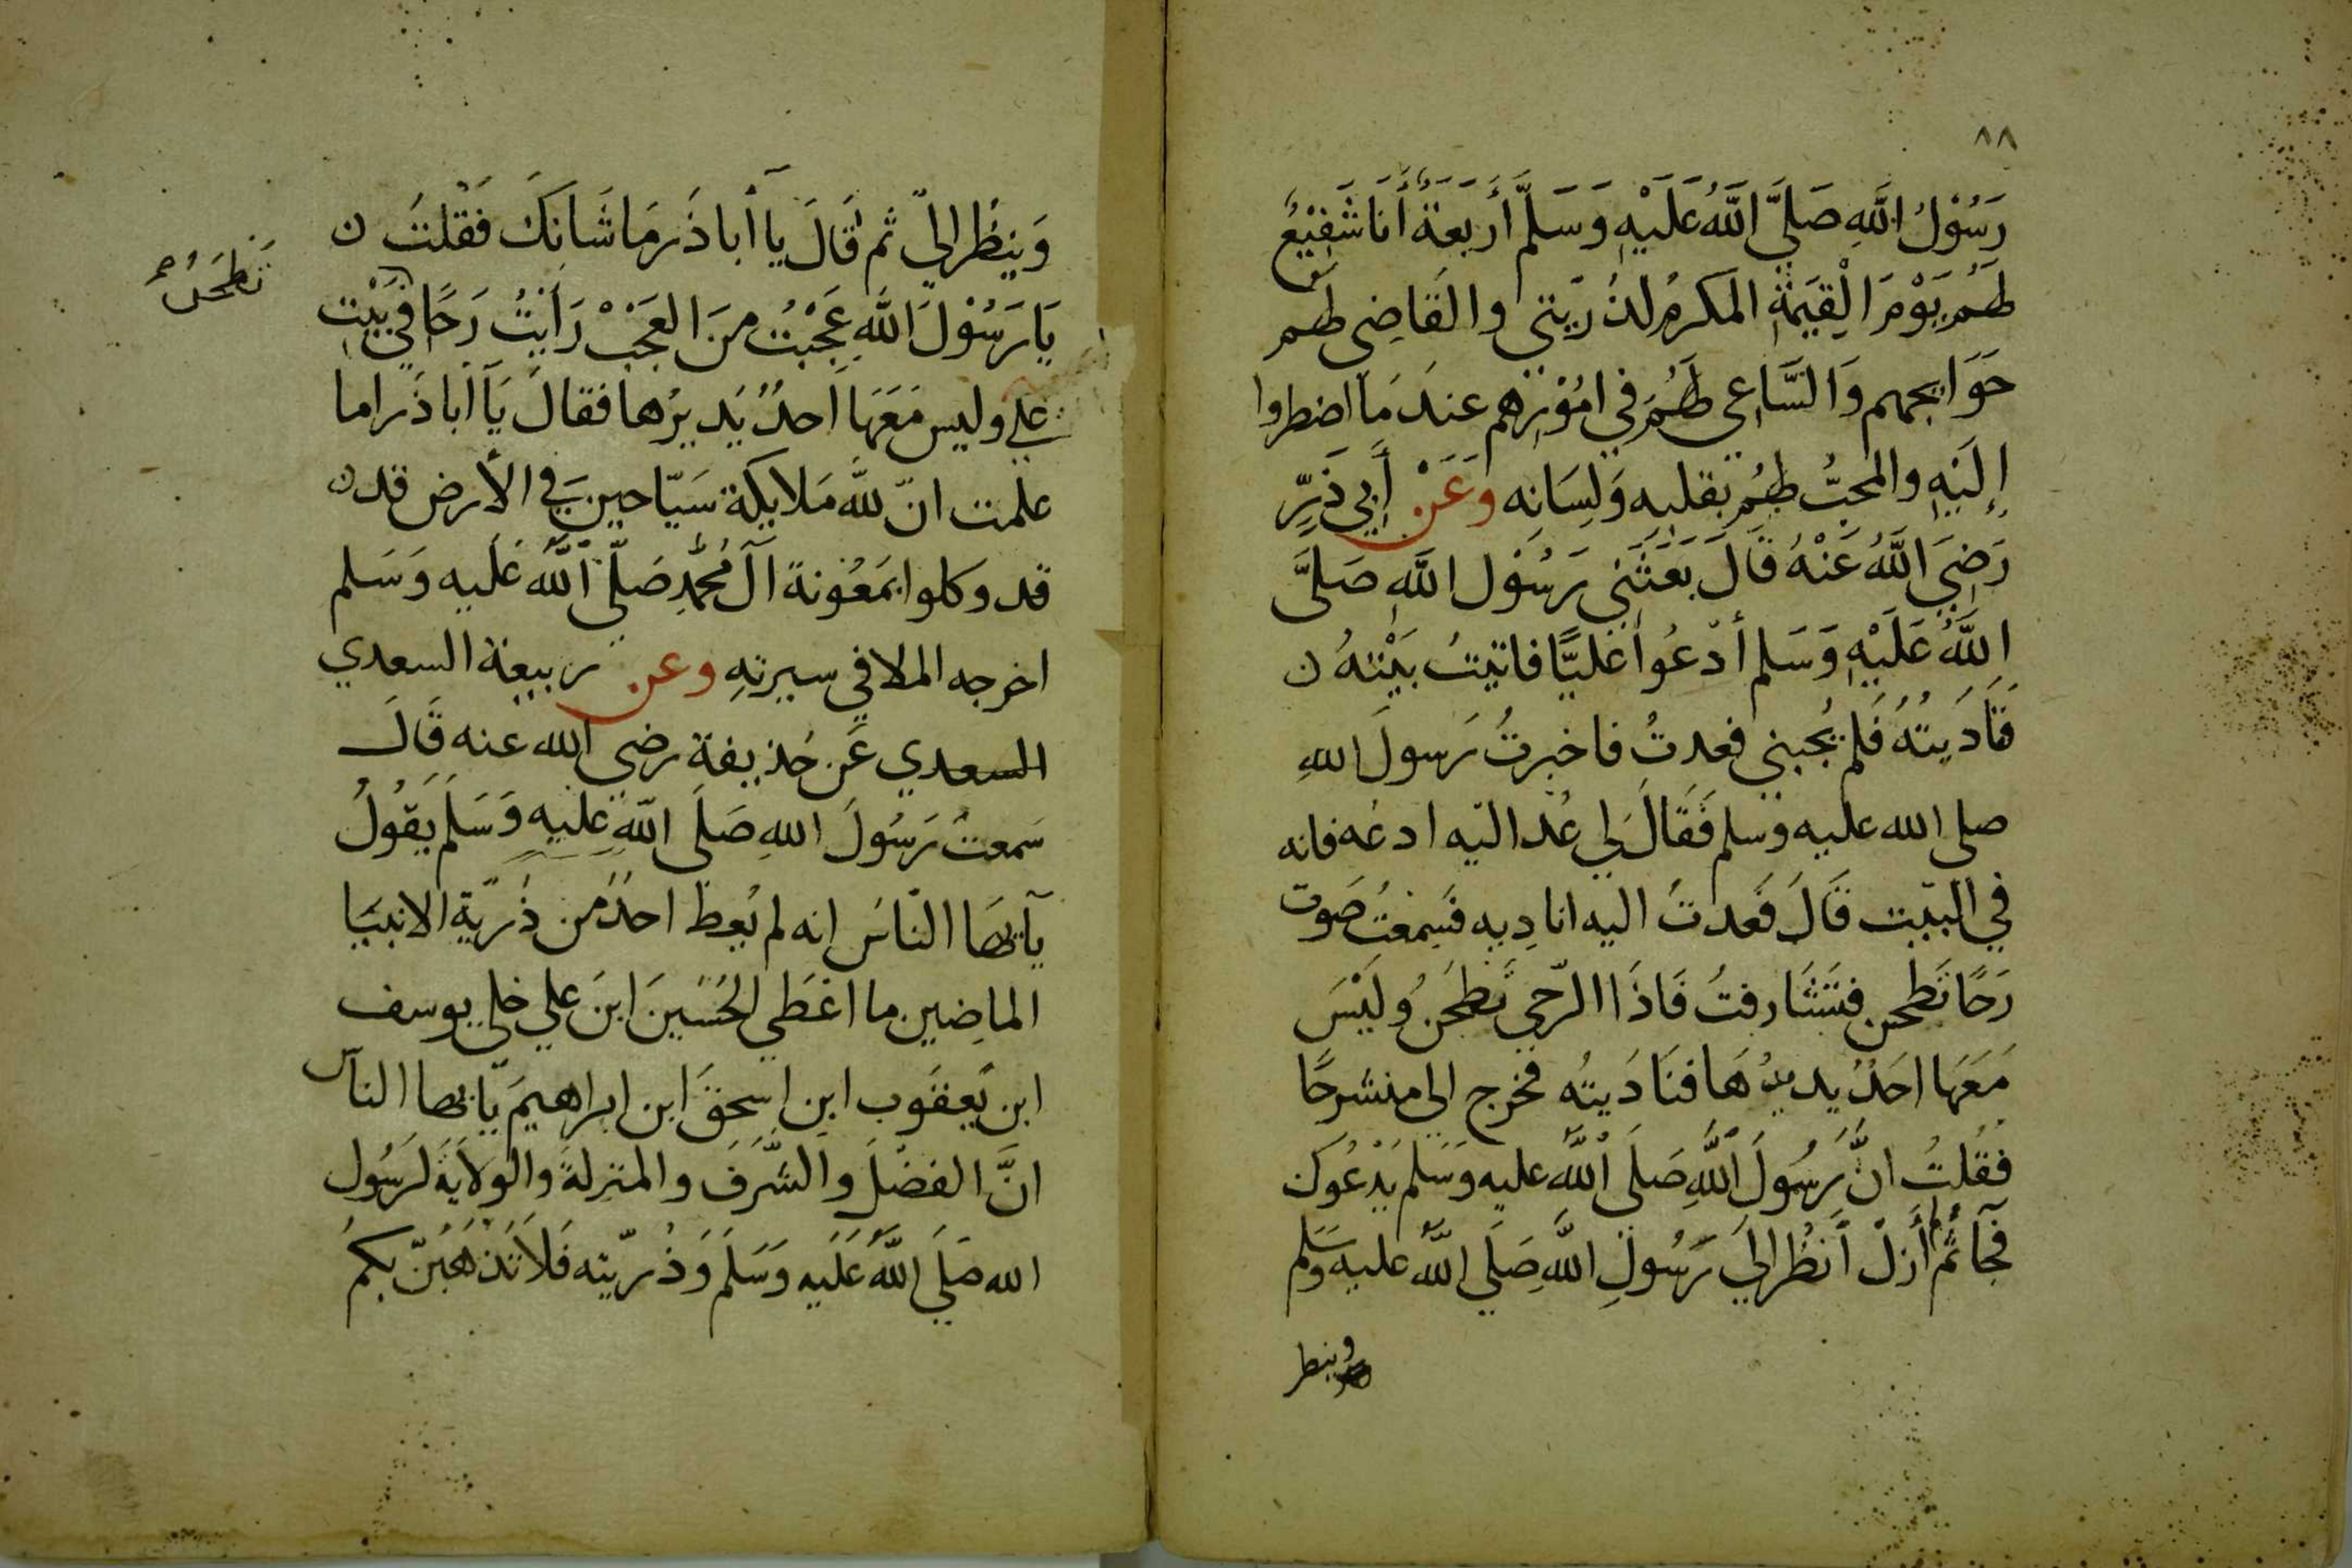 ٨٨
رَسُوْلُ اللَّهِ صَلَّى اللَّهُ عَلَيْهِ وَسَلَّمَ أَرَبَعَةٌ أَنَا شَفِيْعٌ
لَهُم يَوْمَ الْقِيَمَةِ المكرمُ لذُرّيتي والقَاضِي لهم
حَوَايجهم وَالسَّاعِي لَهُمْ في امُوْرِهم عندَ مَا اضطروا
إِلَيْهِ والمحبُّ لهُم بقلبه وَلِسَانِه وَعَنْ أَبِي ذَرٍّ
رَضِيَ اللَّهُ عَنْهُ قَالَ بَعَثَنِي رَسُوْل اللَّهِ صَلَّى
اللَّهُ عَلَيْهِ وَسَلم أدْعُوا عَليًّا فاتيتُ بَيْتهُ ن
فَنَادَيتُهُ فَلم يُجبني فعدتُ فاخبرتُ رَسولَ اللهِ
صلى الله عليه وسلم فَقَالَ لِي عُد اليه ادعُه فانه
في البَيت قَالَ فَعدتُ اليه اناديه فسَمعْتُ صَوت
رَحًا تَطحن فتَشَارفتُ فَاذَا الرّحى تَطحَنُ وليْسَ
مَعَهَا احَدٌ يديرُهَا فنَادَيتُه فخرج الى منشرحًا
فقُلتُ انَّ رَسُولَ اللَّهِ صَلَى اللَّهُ عليه وَسَلم يَدْعُوكَ
فَجَآ ثُم أزلْ أنظُر الى رَسُولِ اللَّهِ صَلَى اللَّهُ عليه وسَلم
وينظر
وَينظُر اليّ ثم قَالَ يا أبا ذَر مَا شَانكَ فقْلتُ ن
يَا رَسُوْلَ اللَّهِ عَجْبتُ منَ العجَبْ رَأيتُ رَحًا في بَيْتِ
تَطحَنُ
علي وليس مَعَهَا احدٌ يَديرُها فقالَ يَا ابا ذَر اما
علمت انّ للَّه مَلايكة سَيّاحين في الأرض قد ن
قد وكلوا بمَعُونة آل مُحمَّدٍ صَلّى اللَّه عَليه وَسَلم
اخرجه الملا في سيرتهِ وعن ربيعة السعدي
السعدي عَن حُذيفة رضي الله عنه قَالَ
سَمعتُ رَسُولَ اللهِ صَلَى اللَّهِ عليه وَسَلَم يَقُولُ
يآيها النّاسَ إنه لم يُعط احدٌ من ذُرّيّة الانبيَا
الماضِين ما اعْطَي الحُسَينَ ابنَ علي خلى يوسف
ابن يَعقوب ابن اسحقَ ابن ابراهيمَ يآيها الناس
انَّ الفضلَ والشَّرَفَ والمنزلةَ والولايَةَ لرَسُول
الله صَلَى اللَّهُ عَلَيه وَسَلَمَ وَذُرّيّته فَلاَ تَذهَبَنّ بكمُ